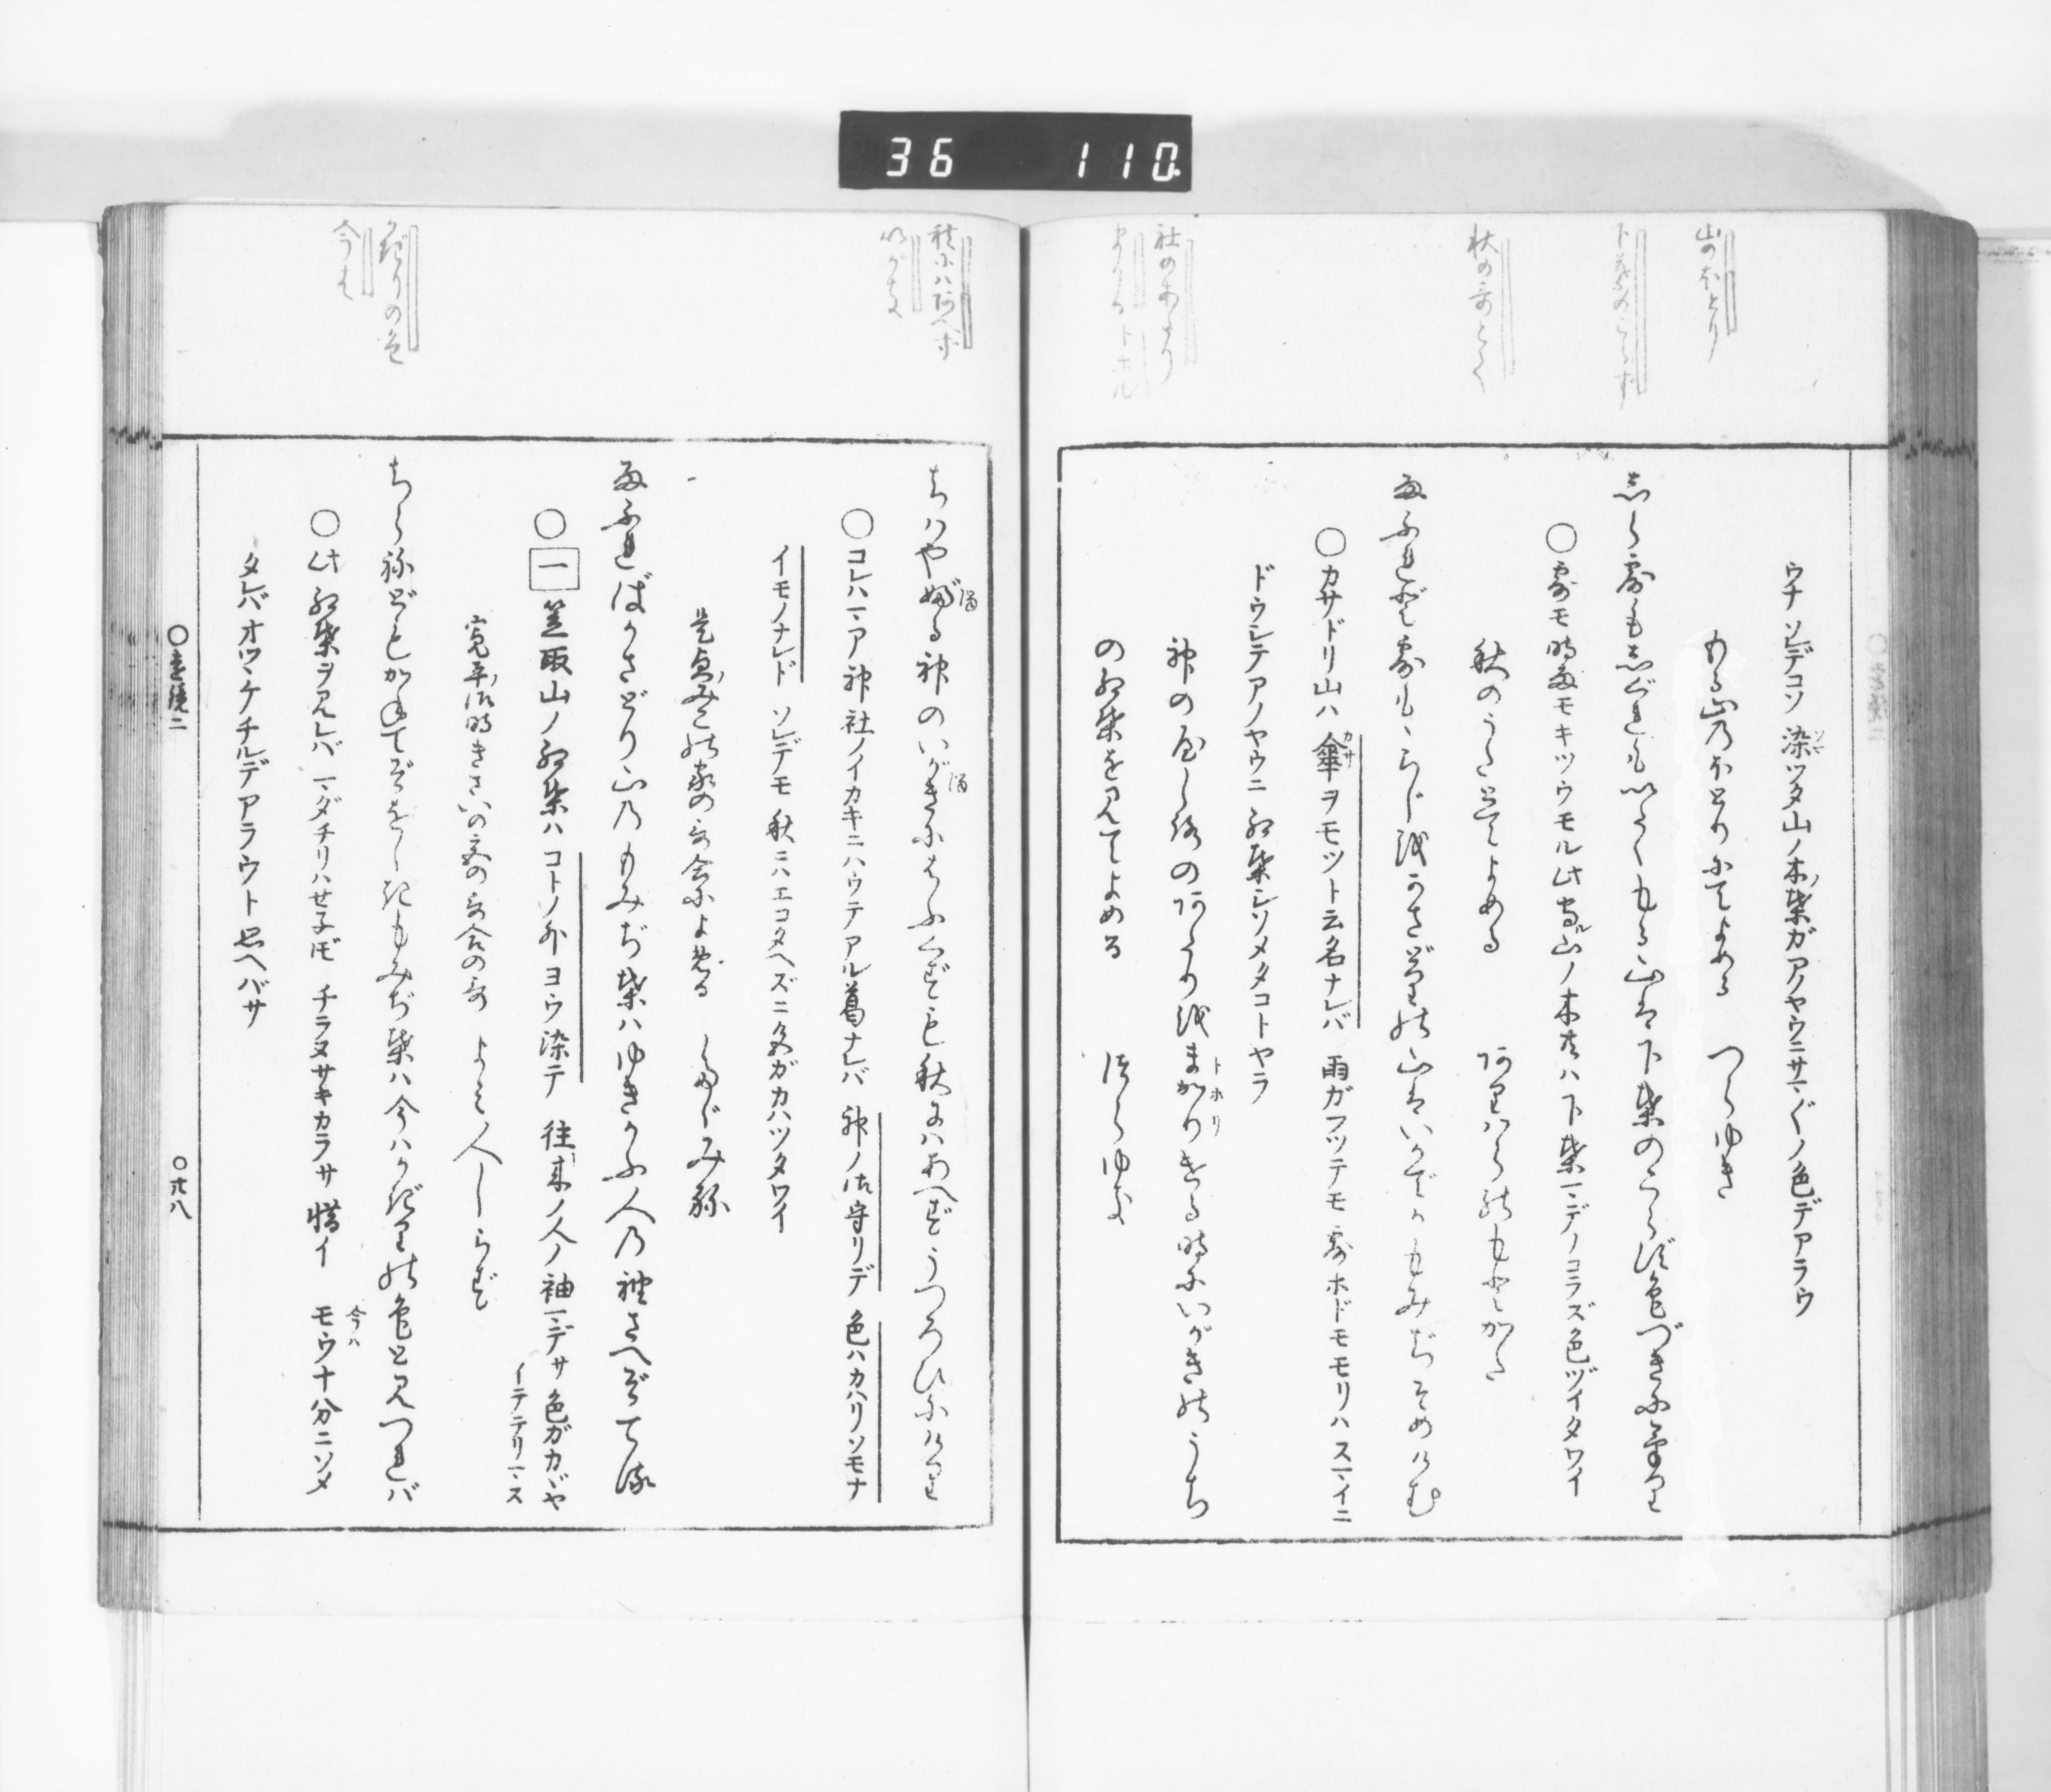 36 110
山のほとり
下葉のこらず
秋の哥とて
社のあたり
まかる トホル
ウチ ソレデコソ 染ツタ山ノ木ノ葉ガアノヤウニサマ〴〵ノ色デアラウ
もる山のほとりにてよめる つらゆき
しら露もしぐれもいたくもる山は下葉のこらず色づきにけり
○露モ時雨モキツウモル此守ル山ノ木共ハ下葉マデノコラズ色ヅイタワイ
秋のうたとてよめる 在はらのもとかた
雨ふれど露ももらじをかさどりの山はいかでかもみぢそめけむ
○カサドリ山ハ傘ヲモツト云名ナレバ 雨ガフツテモ露ホドモモリハスマイニ
カサ
ドウシテアノヤウニ紅葉シソメタコトヤラ
神のやしろのあたりをまかりける時にいがきのうち
トホリ
の紅葉を見てよめる つらゆき
秋にはあへず
いがき
かぎりの色
今は
ちはやぶる神のいがきにはふくずも秋にはあへずうつろひにけり
○コレハマア神社ノイカキニハウテアル葛ナレバ 神ノ御守リデ 色ハカハリソモナ
イモノナレド ソレデモ秋ニハエコタヘズニ色ガカハツタワイ
是貞ノみこの家の哥合によめる たゞみね
雨ふればかさどり山のもみぢ葉はゆきかふ人の袖さへぞてる
○一笠取山ノ紅葉ハコトノ外ヨウ染テ 往来ノ人ノ袖マデサ色ガカヾヤ
イテテリマス
寛平ノ御時きさいの宮の哥合の哥 よみ人しらず
ちらねどもかねてぞをしきもみぢ葉は今はかぎりの色と見つれば
○此紅葉ヲ見レバ マダチリハセネドモ チラヌサキカラサ惜イ モウ十分ニソメ
今ハ
タレバオツヽケチルデアラウト思ヘバサ
○遠鏡二
○廿八